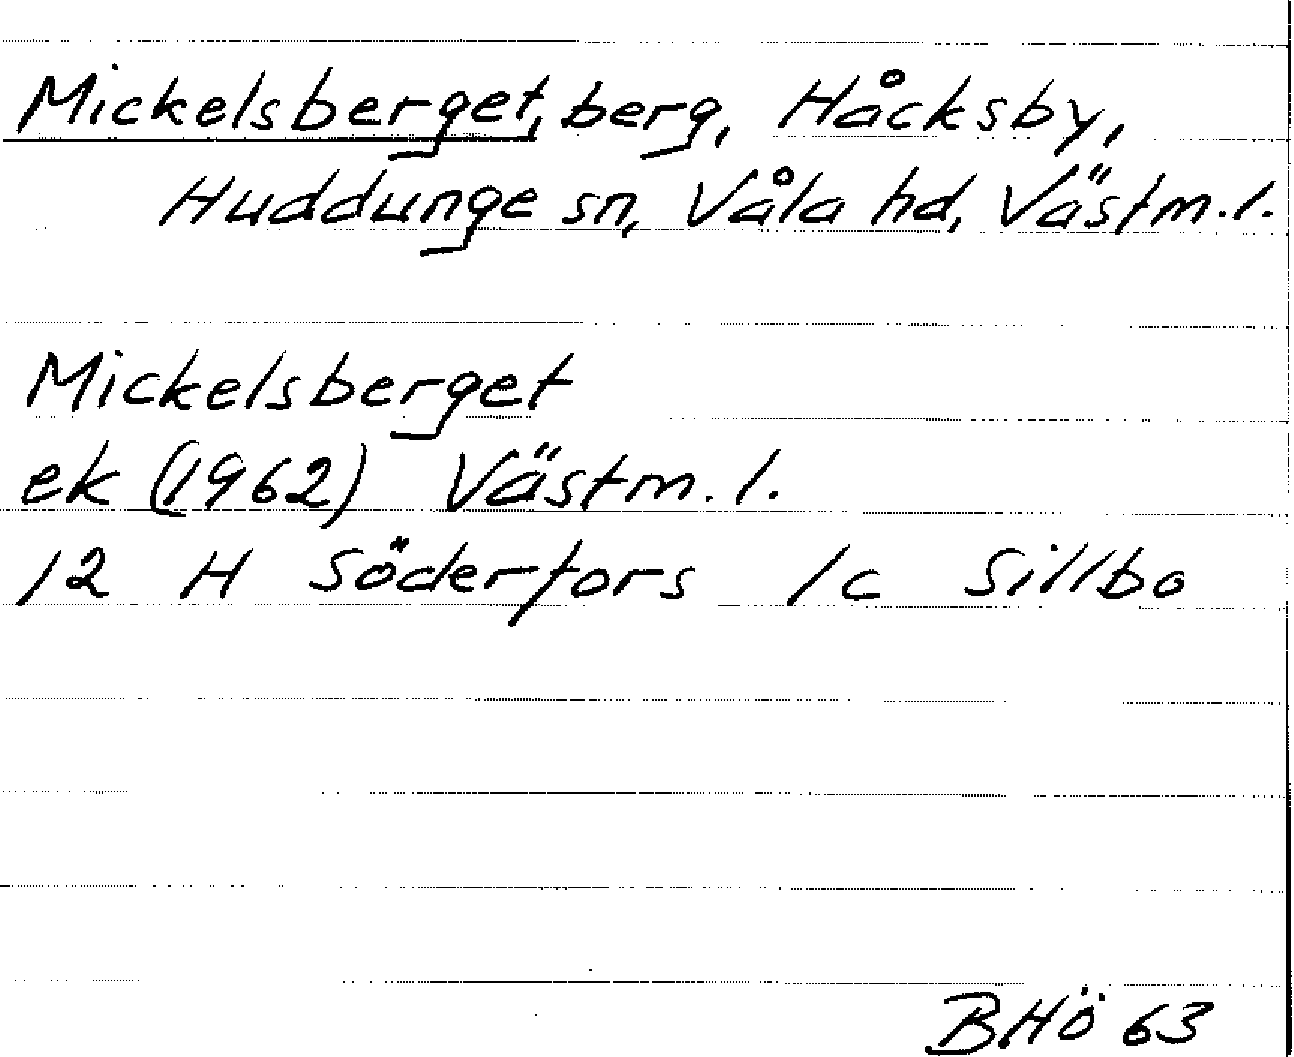 Mickelsberget, berg, Håcksby,
Huddunge sn, Våla hd, Västm.l.
Mickelsberget
ek (1962) Västm.l.
12 H Söderfors 1c Sillbo
BHÖ 63